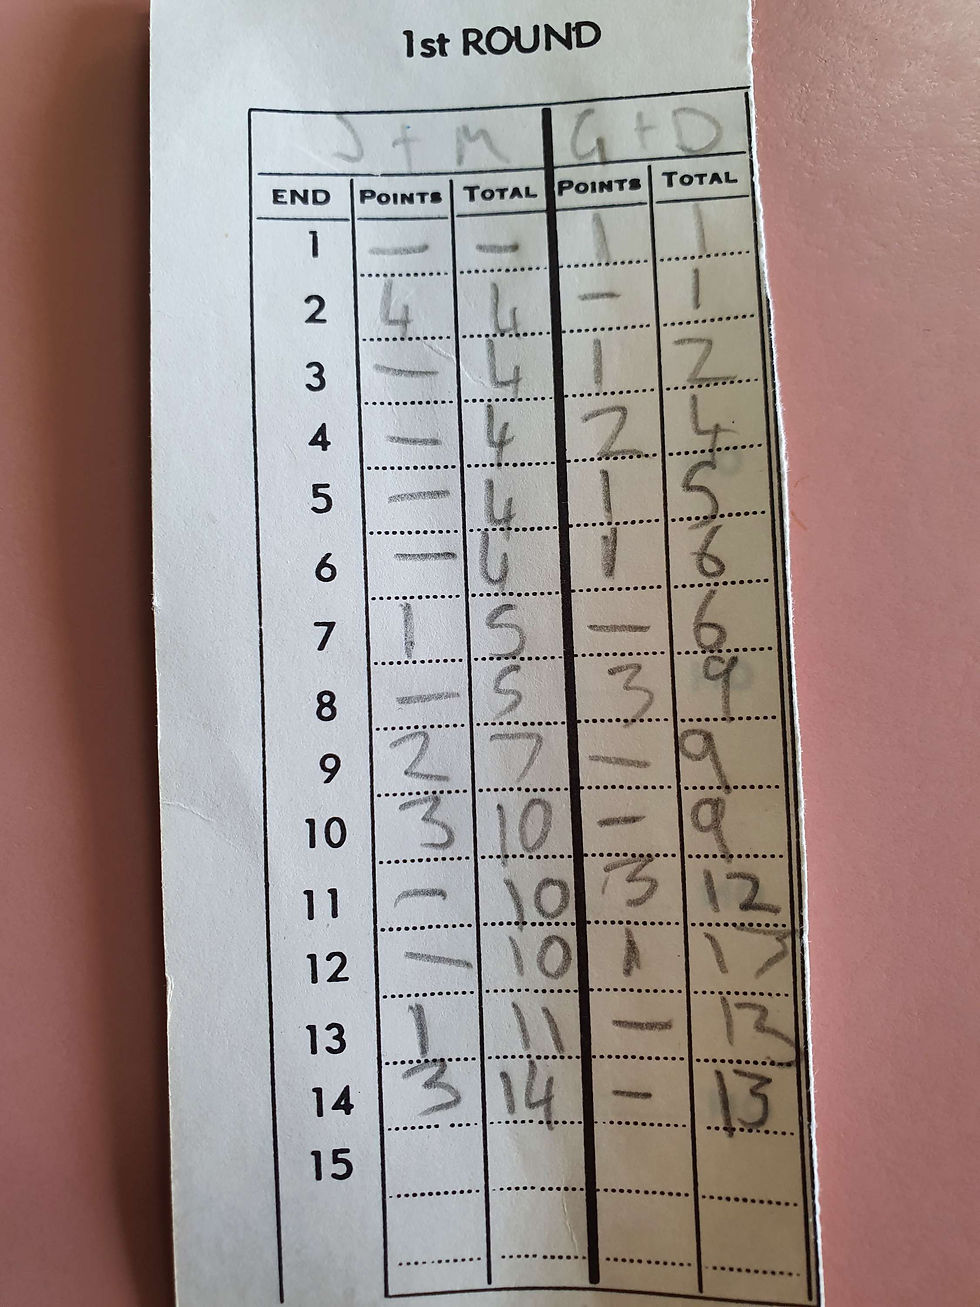 1st ROUND
J + M G + D
END POINTS TOTAL POINTS TOTAL
1 — — 1 1
2 4 4 — 1
3 — 4 1 2
4 — 4 2 4
5 — 4 1 5
6 — 4 1 6
7 1 5 — 6
8 — 5 3 9
9 2 7 — 9
10 3 10 — 9
11 — 10 3 12
12 — 10 1 13
13 1 11 — 13
14 3 14 — 13
15